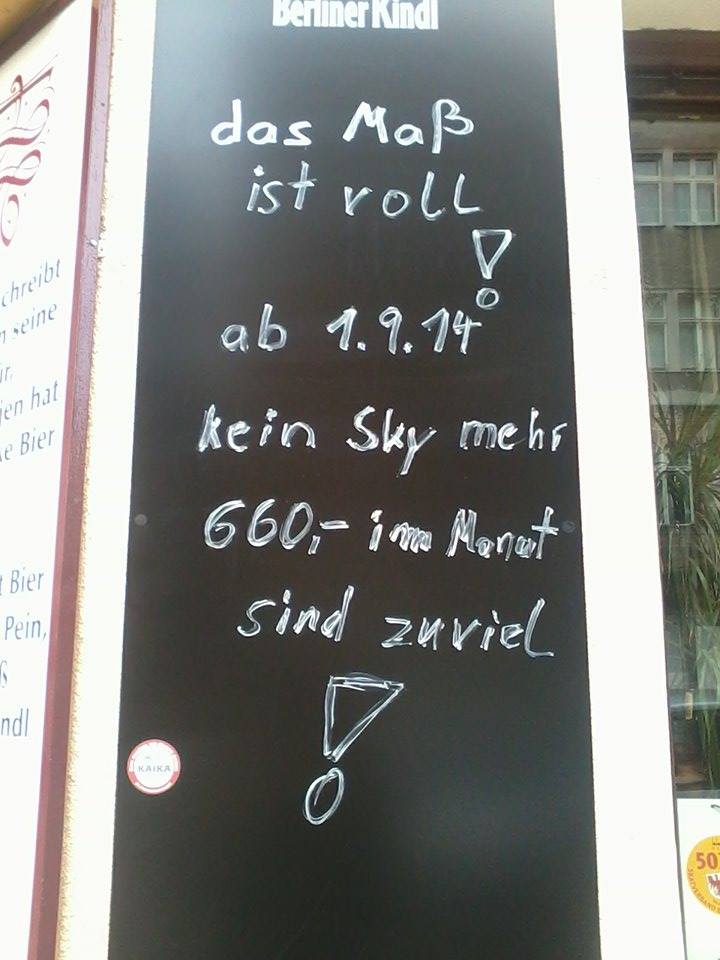 Berliner Kindl
das Maß
ist voll
!
ab 1.9.14
kein Sky mehr
660,- im Monat
sind zuviel
!
KAIKA
chreibt
n seine
ir,
jen hat
ke Bier
t Bier
Pein,
ß
ndl
50